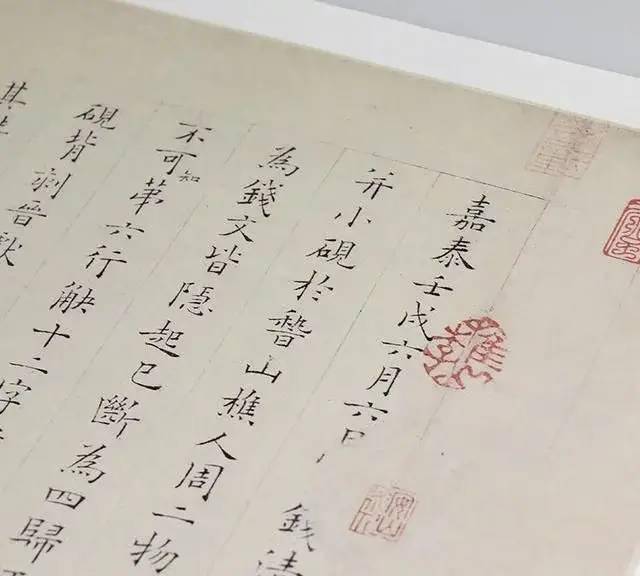 嘉泰壬戌六月六日錢清
并小硯於稽山樵人周二物
為錢文皆隱起已斷為四歸
不可知第六行觖十二字
硯背刻晉獻
其